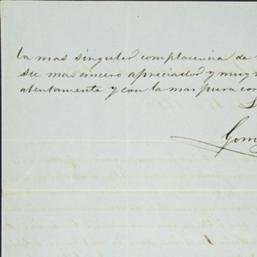 la mas singular complacencia de
su mas sincero apreciador y muy
atentamente y con la mas pura con